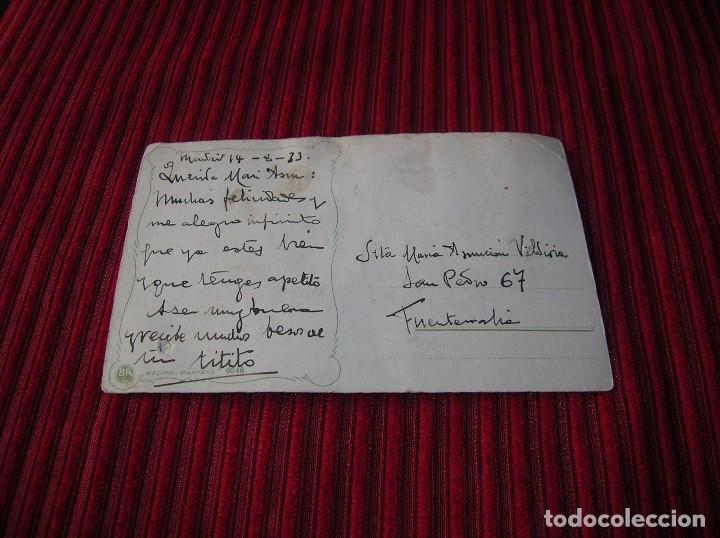 Madrid 14-8-33.
Querida Mari Asun:
Muchas felicidades y
me alegro infinito
que ya estes bien
y que tengas apetito
A ser muy buena
y recibe muchos besos de
tu titito
BR
9048
Srta María Asunción Valdivia
San Pedro 67
Fuenterrabia
todocoleccion.net